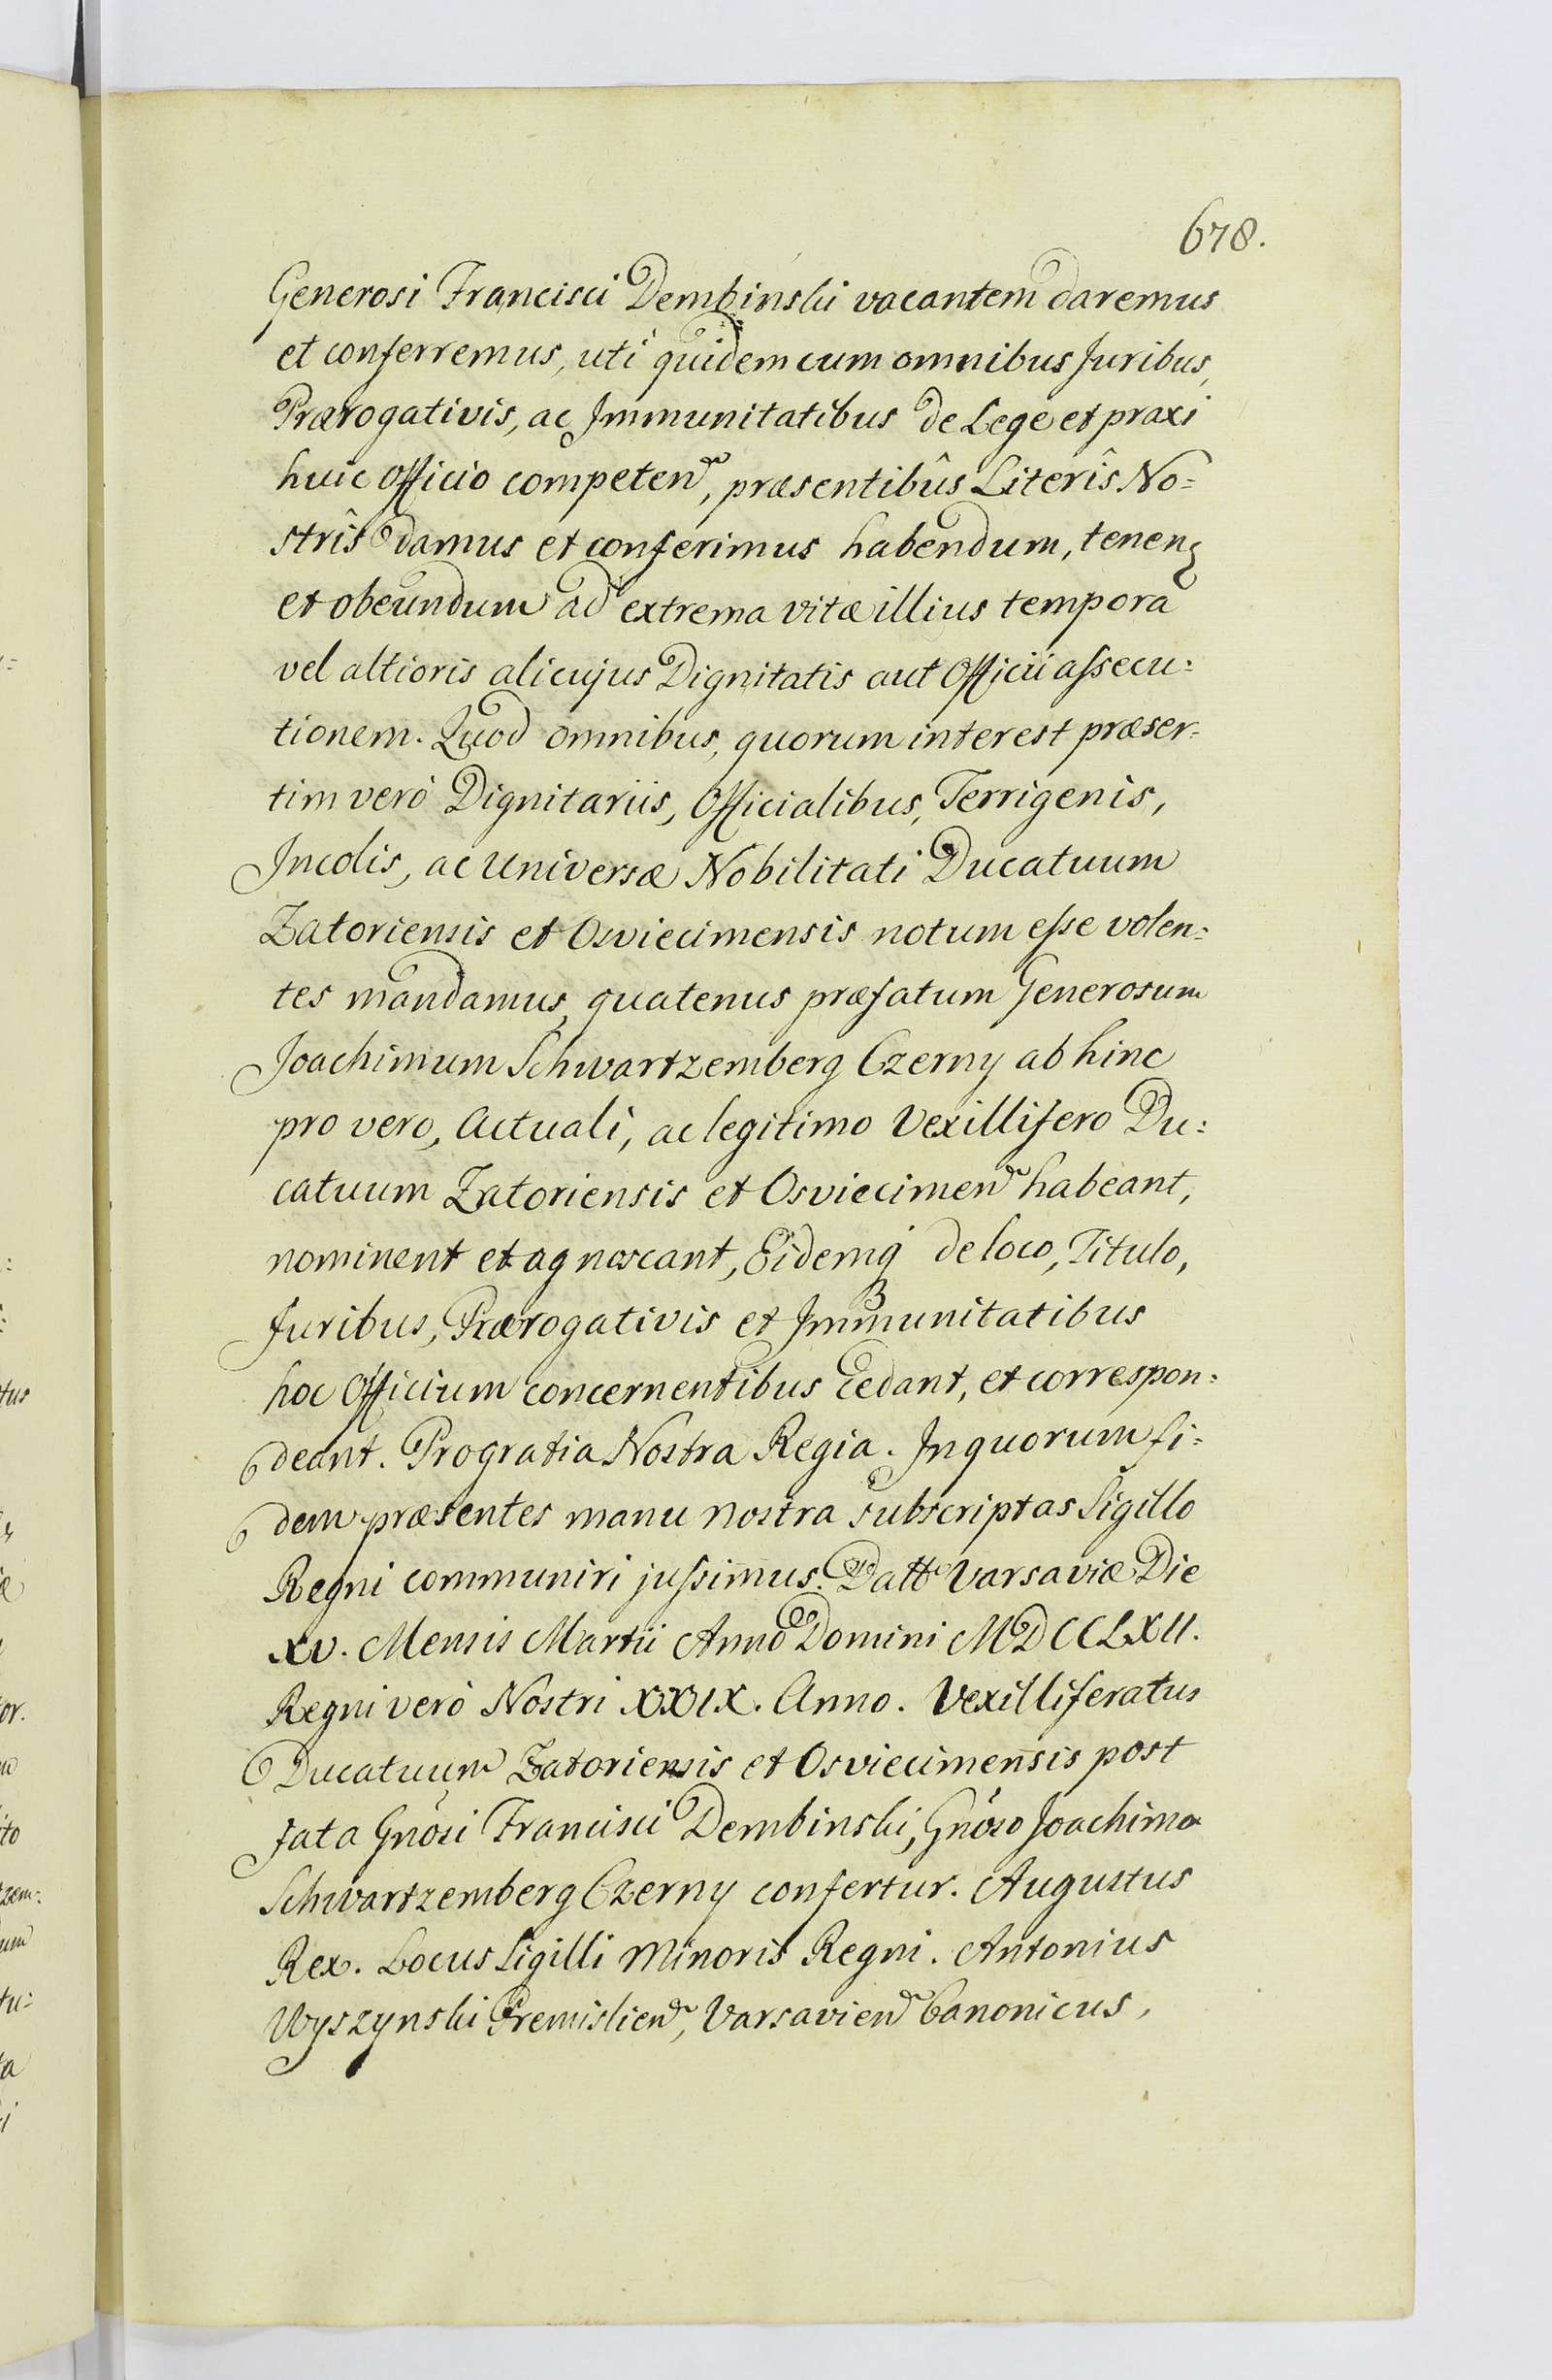 678.
Generosi Francisci Dembinski vacantem daremus
et conferremus, uti quidem cum omnibus Juribus,
Prærogativis, ac Jmmunitatibus de Lege et praxi
huic Officio competen, præsentibûs Literîs No=
strîs damus et conferimus habendum, tenen
et obeundum ad extrema vitæ illius tempora
vel altioris alicujus Dignitatis aut Officii aſsecu:
tionem. Quod omnibus, quorum interest præser=
tim verò Dignitariis, Officialibus, Terrigenis,
Jncolis, ac Universæ Nobilitati Ducatuum
Zatoriensis et Osviecimensis notum eſse volen:
tes mandamus, quatenus præfatum Generosum
Joachimum Schwartzemberg Czerny ab hinc
pro vero, Actuali, ac legitimo Vexillifero Du:
catuum Zatoriensis et Osviecimen habeant,
nominent et agnoscant, Eidemq́ de loco, Titulo,
Juribus, Prærogativis et Jmmunitatibus
hoc Officium concernentibus cedant, et correspon:
deant. Pro gratia Nostra Regia. Jn quorum fi=
dem præsentes manu nostra subscriptas Sigillo
Regni communiri juſsimus. Datt Varsaviæ Die
XV. Mensis Martii Anno Domini MDCCLXII.
Regni verò Nostri XXIX. Anno. Vexilliferatus
Ducatuum Zatoriensis et Osviecimensis post
fata Gnosi Francisci Dembinski, Gnoso Joachimo
Schwartzemberg Czerny confertur. Augustus
Rex. Locus Sigilli Minoris Regni. Antonius
Wyszynski Premislien, Varsavien Canonicus,